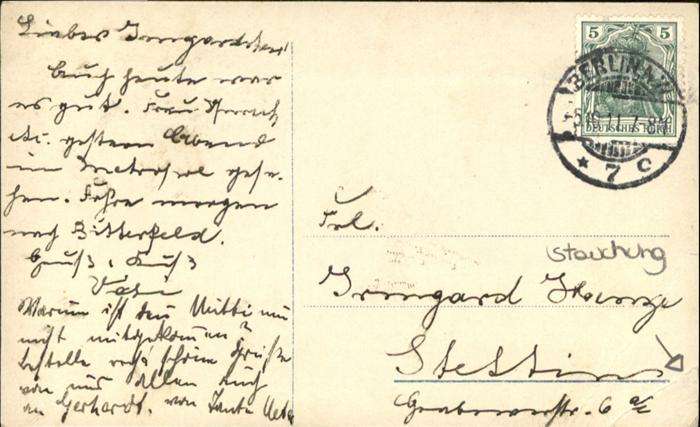 Liebes Irmgardchen!
Auch heute war
es gut. Frau
etc. gestern Abend
im Metropol gese-
hen. Fahre morgen
nach Bitterfeld.
Gruß, Kuß
Vati
Warum ist den Mutti nun
nicht mitgekommen?
bestelle recht schöne Grüße
von uns allen auch
an Gerhardt. von Tante
5 5
DEUTSCHES REICH
BERLIN
11. 7-8
* 7 c
Frl.
Stauchung
Irmgard
Stettin
6